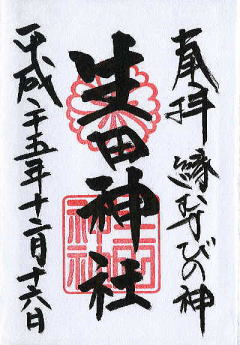 奉拝 縁むすびの神
生田神社
平成二十五年十二月十六日
生田神社